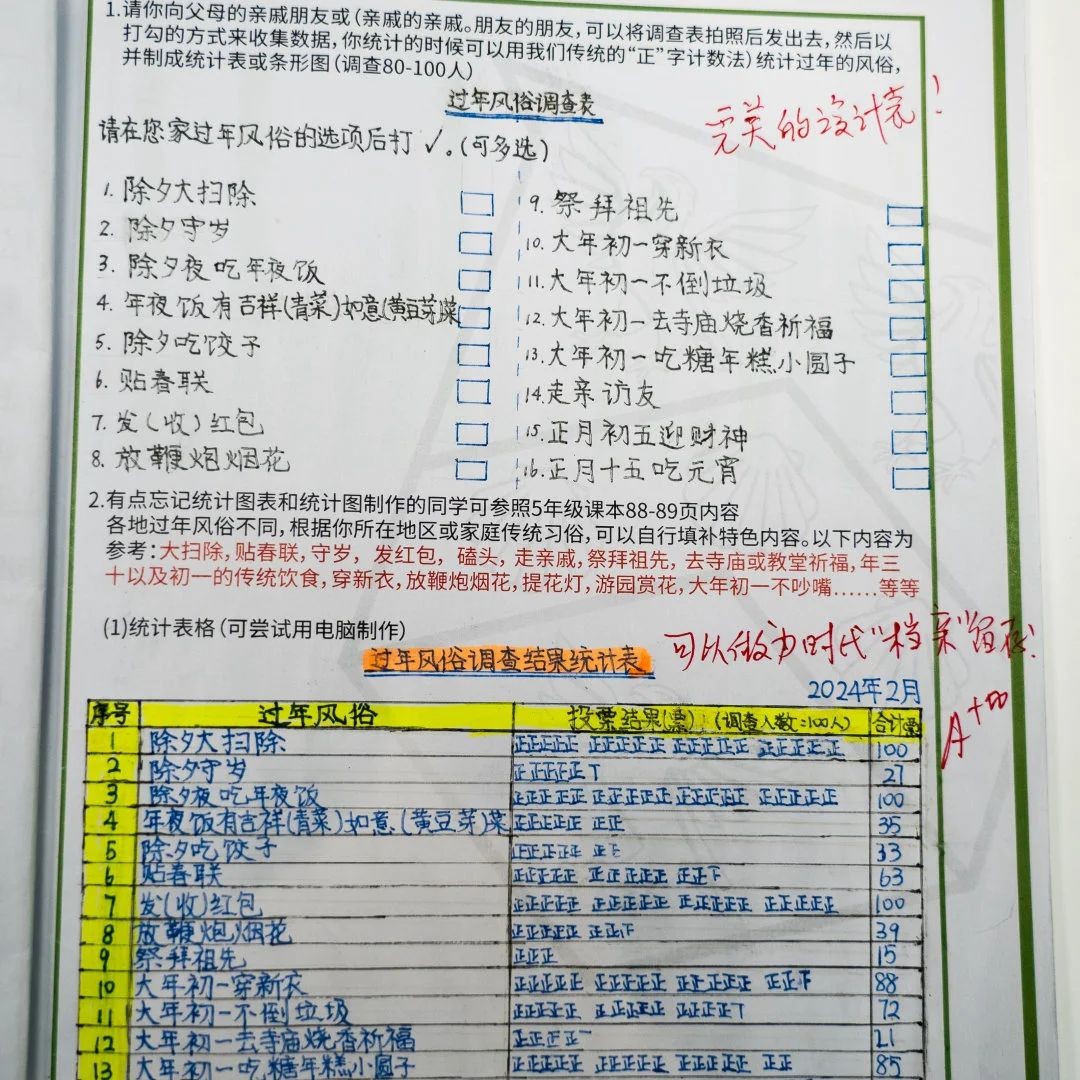 1.请你向父母的亲戚朋友或(亲戚的亲戚。朋友的朋友,可以将调查表拍照后发出去,然后以
打勾的方式来收集数据,你统计的时候可以用我们传统的“正”字计数法)统计过年的风俗,
并制成统计表或条形图(调查80-100人)
过年风俗调查表
完美的设计表!
请在您家过年风俗的选项后打✓。(可多选)
1. 除夕大扫除
2. 除夕守岁
3. 除夕夜吃年夜饭
4. 年夜饭有吉祥(青菜)如意(黄豆芽)菜
5. 除夕吃饺子
6. 贴春联
7. 发(收)红包
8. 放鞭炮烟花
9. 祭拜祖先
10. 大年初一穿新衣
11. 大年初一不倒垃圾
12. 大年初一去寺庙烧香祈福
13. 大年初一吃糖年糕小圆子
14. 走亲访友
15. 正月初五迎财神
16. 正月十五吃元宵
2.有点忘记统计图表和统计图制作的同学可参照5年级课本88-89页内容
各地过年风俗不同,根据你所在地区或家庭传统习俗,可以自行填补特色内容。以下内容为
参考:大扫除,贴春联,守岁, 发红包, 磕头, 走亲戚,祭拜祖先, 去寺庙或教堂祈福,年三
十以及初一的传统饮食,穿新衣,放鞭炮烟花,提花灯,游园赏花,大年初一不吵嘴……等等
(1)统计表格(可尝试用电脑制作)
可以做为时代“档案”留存!
过年风俗调查结果统计表
2024年2月
A+
序号 过年风俗 投票结果(票) (调查人数:100人) 合计(票)
1 除夕大扫除 正正正正正 正正正正正 正正正正正 正正正正正 100
2 除夕守岁 正正正正正丅 27
3 除夕夜吃年夜饭 正正正正正 正正正正正 正正正正正 正正正正正 100
4 年夜饭有吉祥(青菜)如意(黄豆芽)菜 正正正正正 正正 35
5 除夕吃饺子 正正正正正 正 33
6 贴春联 正正正正正 正正正正正 正正下 63
7 发(收)红包 正正正正正 正正正正正 正正正正正 正正正正正 100
8 放鞭炮烟花 正正正正正 正正 39
9 祭拜祖先 正正正 15
10 大年初一穿新衣 正正正正正 正正正正正 正正正正正 正正 88
11 大年初一不倒垃圾 正正正正正 正正正正正 正正正正丅 72
12 大年初一去寺庙烧香祈福 正正正正一 21
13 大年初一吃糖年糕小圆子 正正正正正 正正正正正 正正正正正 正正 85